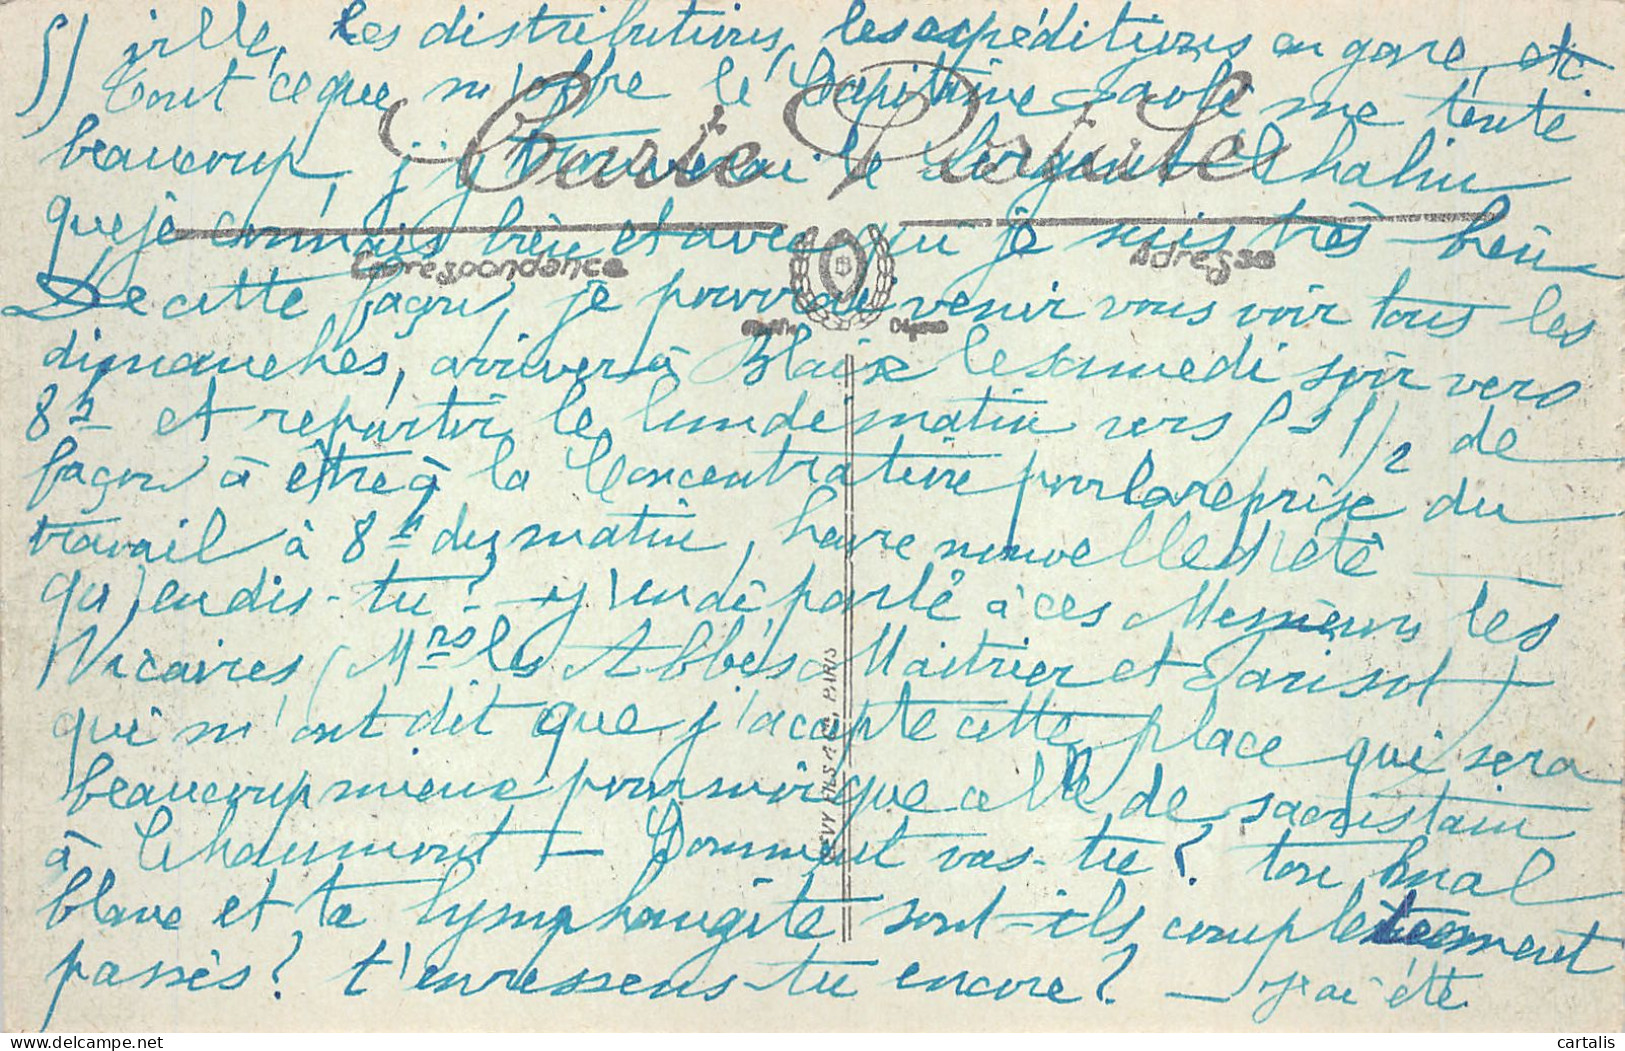 ville, les distributions, les expéditions en gare, etc
Tout ce que m'offre le Capitaine me tente
beaucoup, j'y trouverai le Sergent Chalin
que je connais bien et avec qui je suis très bien
De cette façon, je pourrai venir vous voir tous les
dimanches, arriver à Blaise le samedi soir vers
8h et repartir le lundi matin vers 1/2 de
façon à être à la Concentration pour la reprise du
travail à 8h du matin, heure nouvelle d'été
qu'en dis-tu? — j'en ai parlé à ces Messieurs les
Vicaires (Mrs les Abbés Maitrier et Parisot)
qui m'ont dit que j'accepte cette place qui sera
beaucoup mieux pour moi que celle de sacristain
à Chaumont — Comment vas-tu? ton mal
blanc et ta lymphangite sont-ils complètement
passés? t'en ressens-tu encore? — j'ai été
Carte Postale
Correspondance
Adresse
LEVY FILS & Cie, PARIS
cartalis
delcampe.net